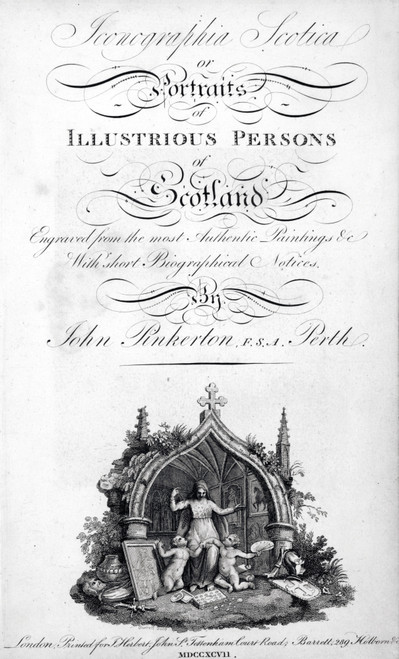 Iconographia Scotica
or
Portraits
of
ILLUSTRIOUS PERSONS
of
Scotland
Engraved from the most Authentic Paintings &c
With short Biographical Notices.
By
John Pinkerton, F.S.A. Perth.
London, Printed for I. Herbert, John St. Tottenham Court Road; Barrett, 289 Holborn &c
MDCCXCVII.